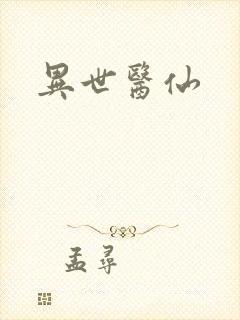 異世醫仙
孟尋